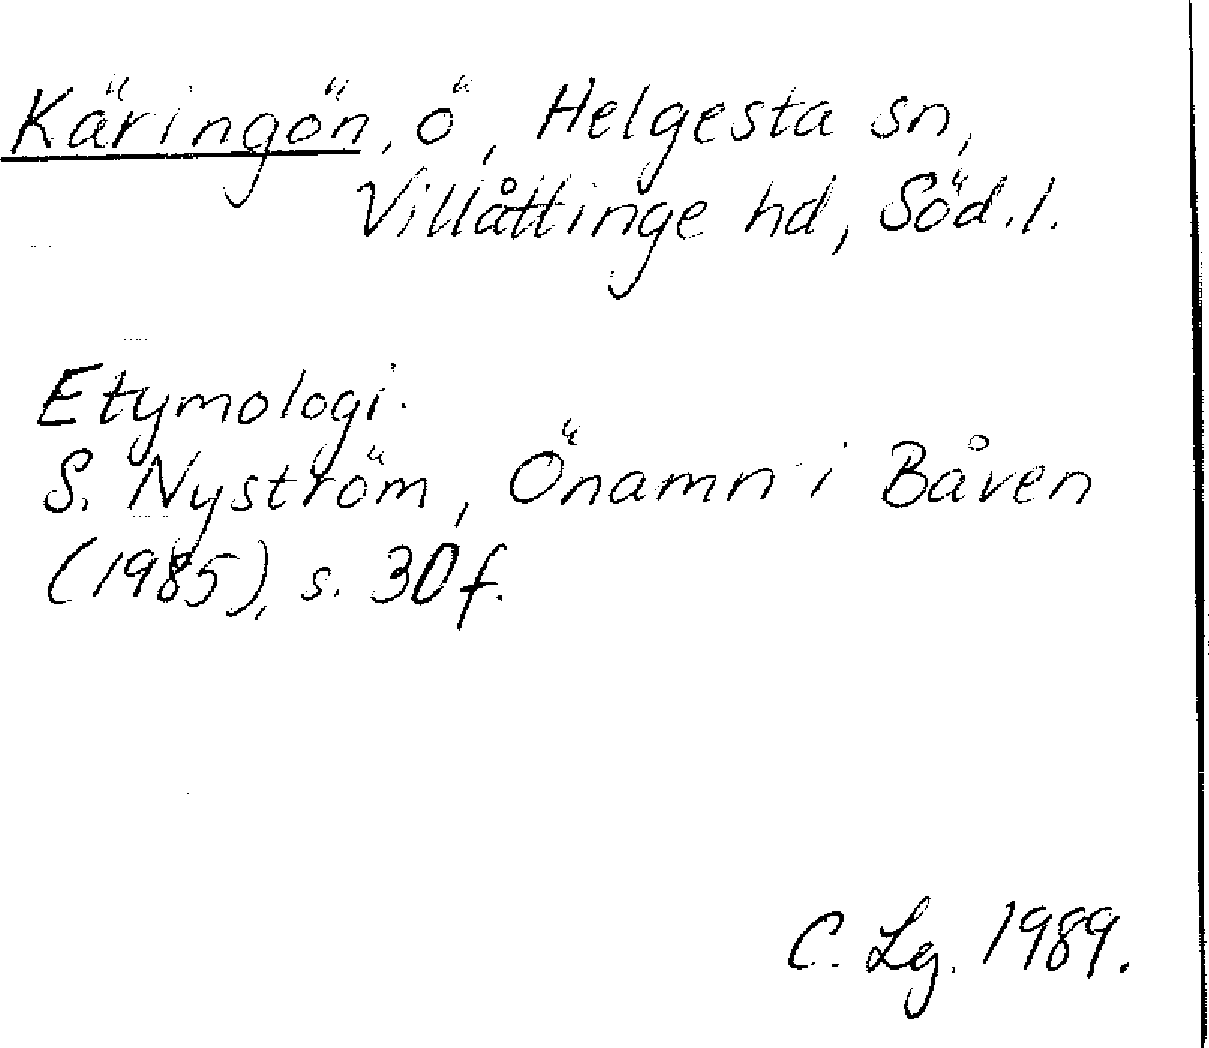 Käringön, ö, Helgesta sn,
Villåttinge hd, Söd.l.
Etymologi.
S. Nyström, Önamn i Båven
(1985), s. 30 f.
C. Lg. 1989.